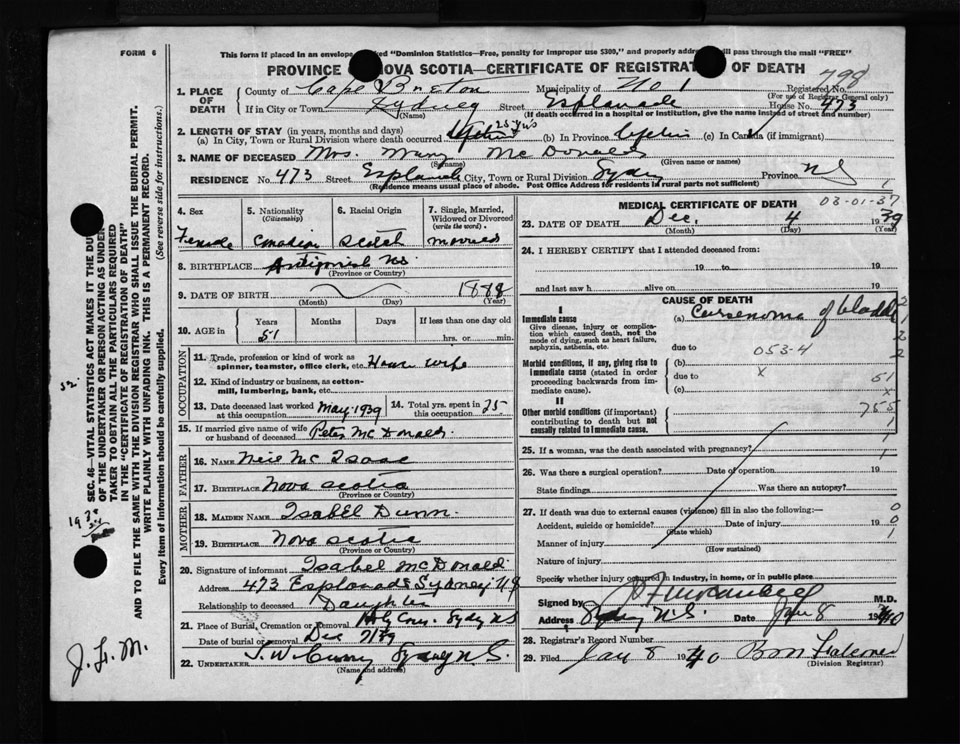 FORM 6
This form if placed in an envelope marked "Dominion Statistics—Free, penalty for improper use $300," and properly addressed will pass through the mail "FREE"
PROVINCE OF NOVA SCOTIA—CERTIFICATE OF REGISTRATION OF DEATH
798
1. PLACE OF DEATH
County of Cape Breton Municipality of No 1 Registered No.
(For use of Registrar General only)
If in City or Town Sydney Street Esplanade House No. 473
(Name) (If death occurred in a hospital or institution, give the name instead of street and number)
2. LENGTH OF STAY (in years, months and days)
(a) In City, Town or Rural Division where death occurred 25 yrs (b) In Province Life (c) In Canada (if immigrant)
3. NAME OF DECEASED Mrs. Mary McDonald
(Surname) (Given name or names)
RESIDENCE No. 473 Street Esplanade City, Town or Rural Division Sydney Province NS
(Residence means usual place of abode. Post Office Address for residents in rural parts not sufficient)
4. Sex
Female
5. Nationality
(Citizenship)
Canadian
6. Racial Origin
Scotch
7. Single, Married, Widowed or Divorced
(write the word)
Married
8. BIRTHPLACE Antigonish NS
(Province or Country)
9. DATE OF BIRTH 1888
(Month) (Day) (Year)
10. AGE in
Years Months Days If less than one day old
51 hrs. or min.
OCCUPATION
11. Trade, profession or kind of work as
spinner, teamster, office clerk, etc. House wife
12. Kind of industry or business, as cotton-
mill, lumbering, bank, etc.
13. Date deceased last worked at this occupation May 1939
14. Total yrs. spent in this occupation 25
15. If married give name of wife or husband of deceased Peter McDonald.
FATHER
16. NAME Neil McIsaac
17. BIRTHPLACE Nova Scotia
(Province or Country)
MOTHER
18. MAIDEN NAME Isabel Dunn.
19. BIRTHPLACE Nova Scotia
(Province or Country)
20. Signature of informant Isabel McDonald.
Address 473 Esplanade Sydney N S
Relationship to deceased Daughter
21. Place of Burial, Cremation or Removal Holy Cross. Sydney NS
Date of burial or removal Dec 7/39
22. UNDERTAKER T. W. Curry Sydney N.S.
(Name and address)
MEDICAL CERTIFICATE OF DEATH
03-01-37
23. DATE OF DEATH Dec. 4 1939
(Month) (Day) (Year)
24. I HEREBY CERTIFY that I attended deceased from:
19 to 19
and last saw h alive on 19
CAUSE OF DEATH
I
Immediate cause
Give disease, injury or complication which caused death, not the mode of dying, such as heart failure, asphyxia, asthenia, etc.
(a) Carsenoma of bladder
due to 053-4
Morbid conditions, if any, giving rise to immediate cause (stated in order proceeding backwards from immediate cause).
(b) x
due to 51
(c) x
II
Other morbid conditions (if important) contributing to death but not causally related to immediate cause.
755
25. If a woman, was the death associated with pregnancy?
26. Was there a surgical operation? Date of operation 19
State findings Was there an autopsy?
27. If death was due to external causes (violence) fill in also the following:—
Accident, suicide or homicide? Date of injury 19
(State which)
Manner of injury
(How sustained)
Nature of injury
Specify whether injury occurred in industry, in home, or in public place
Signed by M.D.
Address Sydney N.S. Date Jan 8 1940
28. Registrar's Record Number
29. Filed Jan 8 1940
(Division Registrar)
SEC. 46—VITAL STATISTICS ACT MAKES IT THE DUTY
OF THE UNDERTAKER OR PERSON ACTING AS UNDER-
TAKER TO OBTAIN ALL THE PARTICULARS REQUIRED
IN THE "CERTIFICATE OF REGISTRATION OF DEATH"
AND TO FILE THE SAME WITH THE DIVISION REGISTRAR WHO SHALL ISSUE THE BURIAL PERMIT.
(See reverse side for instructions.)
WRITE PLAINLY WITH UNFADING INK. THIS IS A PERMANENT RECORD.
Every item of information should be carefully supplied.
J. H. M.